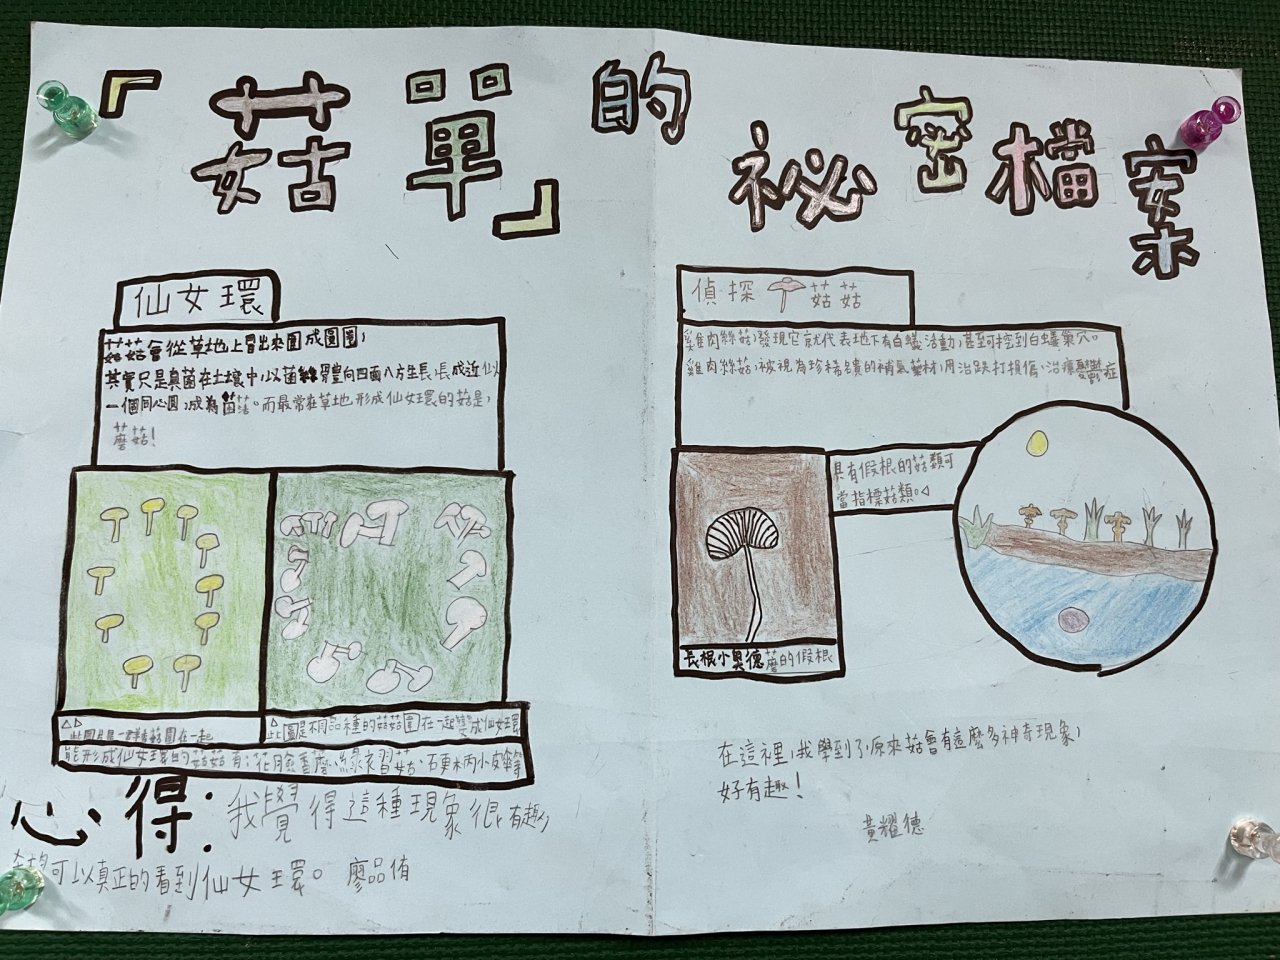 「菇單」的祕密檔案
仙女環
菇菇會從草地上冒出來圍成圈圈，
其實只是真菌在土壤中，以菌絲體向四面八方生長，長成近似
一個同心圓，成為菌落。而最常在草地形成仙女環的菇是，
蘑菇！
此圖是不同品種的菇菇圍在一起變成仙女環
能形成仙女環的菇菇有：花臉香蘑、綠衣習菇、石更木丙小皮傘等
心得：我覺得這種現象很有趣，
可以真正的看到仙女環。 廖品侑
偵探 菇菇
雞肉絲菇，發現它就代表地下有白蟻活動，甚至可挖到白蟻巢穴。
雞肉絲菇，被視為珍稀名貴的補氣藥材，用治跌打損傷、治療憂鬱症
具有假根的菇類可
當指標菇類。
長根小奧德蘑的假根
在這裡，我學到了，原來菇會有這麼多神奇現象，
好有趣！
黃耀德